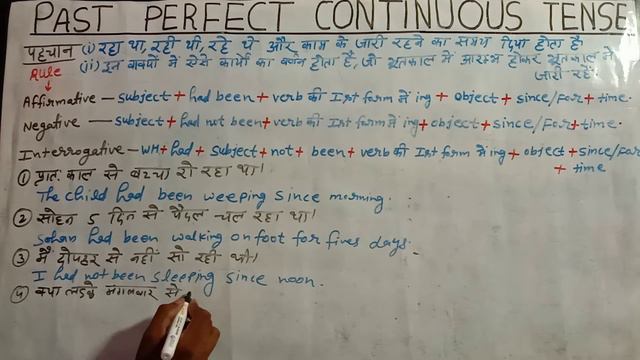 PAST PERFECT CONTINUOUS TENSE
पहचान (i) रहा था, रही थी, रहे थे और काम के जारी रहने का समय दिया होता है।
(ii) इन वाक्यों में ऐसे कार्यों का वर्णन होता है, जो भूतकाल में आरम्भ होकर भूतकाल में
जारी रहे।
Rule
Affirmative — subject + had been + verb की Ist form में ing + object + since/for + time.
Negative — subject + had not been + verb की Ist form में ing + object + since/for + time.
Interrogative — WH + had + subject + not + been + verb की Ist form में ing + object + since/for
+ time
① प्रातः काल से बच्चा रो रहा था।
The child had been weeping since morning.
② सोहन 5 दिन से पैदल चल रहा था।
Sohan had been walking on foot for fives days.
③ मैं दोपहर से नहीं सो रही थी।
I had not been sleeping since noon.
④ क्या लड़के मंगलवार से